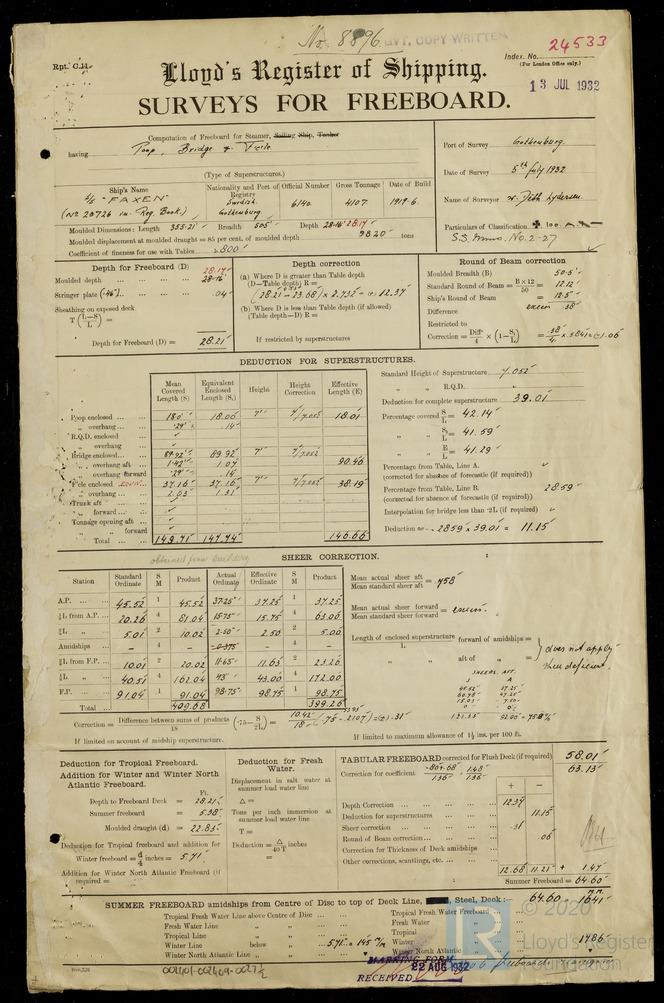 No. 8896
GVT. COPY WRITTEN
Index. No. 24533
(For London Office only.)
Rpt. C.11.
Lloyd's Register of Shipping.
13 JUL 1932
SURVEYS FOR FREEBOARD.
Computation of Freeboard for Steamer, Sailing Ship, Tanker
having Poop, Bridge &
(Type of Superstructures.)
Port of Survey Gothenburg.
Date of Survey 5th July 1932
Name of Surveyor
Particulars of Classification 100 A
S.S. No. 2-27
Ship's Name
Nationality and Port of Registry
Official Number
Gross Tonnage
Date of Build
S/S "FAXEN"
Swedish.
6140
4107
1919-6
(No 20726 in Reg. Book.)
Gothenburg
Moulded Dimensions: Length 355.21 Breadth 50.5 Depth 28.16 28.17
Moulded displacement at moulded draught = 85 per cent. of moulded depth 9820 tons
Coefficient of fineness for use with Tables .800
Depth for Freeboard (D)
Moulded depth 28.17
28.16
Stringer plate (.46") .04
Sheathing on exposed deck
T(L-S/L) =
Depth for Freeboard (D) = 28.21
Depth correction
(a) Where D is greater than Table depth
(D—Table depth) R =
(28.21 - 23.68) x 2.732 = (+) 12.37
(b) Where D is less than Table depth (if allowed)
(Table depth—D) R =
If restricted by superstructures
Round of Beam correction
Moulded Breadth (B) 50.5
Standard Round of Beam = B×12/50 = 12.12
Ship's Round of Beam = 12.5
Difference excess .38
Restricted to
Correction = Diff/4 × (1-S₁/L) = .38/4 x .5841 = (-) .06
DEDUCTION FOR SUPERSTRUCTURES.
Mean Covered Length (S)
Equivalent Enclosed Length (S₁)
Height
Height Correction
Effective Length (E)
Poop enclosed 18.0 18.00 7' 7/7.052 18.01
„ overhang .29 .14
R.Q.D. enclosed
„ overhang
Bridge enclosed 89.92 89.92 7' 7/7.052
„ overhang aft 1.42 1.07 90.46
„ overhang forward .29 .14
F'cle enclosed 37.16 37.16 7' 7/7.052 38.19
„ overhang 2.63 1.31
Trunk aft
„ forward
Tonnage opening aft
„ forward
Total 149.71 147.74 146.66
Standard Height of Superstructure 7.052
„ „ R.Q.D. „
Deduction for complete superstructure 39.01
Percentage covered S/L = 42.14
„ „ S₁/L = 41.59
„ „ E/L = 41.29
Percentage from Table, Line A.
(corrected for absence of forecastle (if required))
Percentage from Table, Line B. 28.59
(corrected for absence of forecastle (if required))
Interpolation for bridge less than ·2L (if required)
Deduction = .2859 x 39.01 = 11.15
obtained from builders
SHEER CORRECTION.
Station
Standard Ordinate
S M
Product
Actual Ordinate
Effective Ordinate
S M
Product
A.P. 45.52 1 45.52 37.25 37.25 1 37.25
⅙L from A.P. 20.26 4 81.04 15.75 15.75 4 63.00
⅓L „ 5.01 2 10.02 2.50 2.50 2 5.00
Amidships - 4 - 0.375 4 -
⅓L from F.P. 10.01 2 20.02 11.63 11.63 2 23.26
⅙L „ 40.51 4 162.04 43 43.00 4 172.00
F.P. 91.04 1 91.04 98.75 98.75 1 98.75
Total 409.68 399.26
Mean actual sheer aft / Mean standard sheer aft = .758
Mean actual sheer forward / Mean standard sheer forward = excess.
Length of enclosed superstructure / L forward of amidships =
„ „ aft of „ =
does not apply
sheer deficient.
SHEERS. AFT.
S A
45.52 37.25
60.78 47.25
15.03 7.50
0 0
121.33 92.00 = 75.8%
Correction = Difference between sums of products / 18 (·75 - S/2L) = 10.42/18 (.75 - .2107) = (+) .31
If limited on account of midship superstructure.
If limited to maximum allowance of 1½ ins. per 100 ft.
Deduction for Tropical Freeboard.
Addition for Winter and Winter North
Atlantic Freeboard.
Ft.
Depth to Freeboard Deck = 28.21
Summer freeboard = 5.38
Moulded draught (d) = 22.83
Deduction for Tropical freeboard and addition for
Winter freeboard = d/4 inches = 5.71
Addition for Winter North Atlantic Freeboard (if
required =
Deduction for Fresh
Water.
Displacement in salt water at
summer load water line
Δ =
Tons per inch immersion at
summer load water line
T =
Deduction = Δ/40 T inches
=
TABULAR FREEBOARD corrected for Flush Deck (if required) 58.01
Correction for coefficient .80+.68/1.36 1.48/1.36 63.13
+ -
Depth Correction 12.37
Deduction for superstructures 11.15
Sheer correction .31
Round of Beam correction .06
Correction for Thickness of Deck amidships
Other corrections, scantlings, etc.
12.68 11.21 + 1.47
Summer Freeboard = 64.60
SUMMER FREEBOARD amidships from Centre of Disc to top of Deck Line, Steel, Deck:— 64.60 m.m. 1641
Tropical Fresh Water Line above Centre of Disc
Fresh Water Line „ „
Tropical Line „ „
Winter Line below „ 5.71 = 145 m/m
Winter North Atlantic Line „ „
Tropical Fresh Water Freeboard
Fresh Water „
Tropical „
Winter „ 1786
Winter North Atlantic „
© 2020
LR
Lloyd's Register
Foundation
MARKING FORM
22 AUG 1932
RECEIVED
002401-002409-0027½